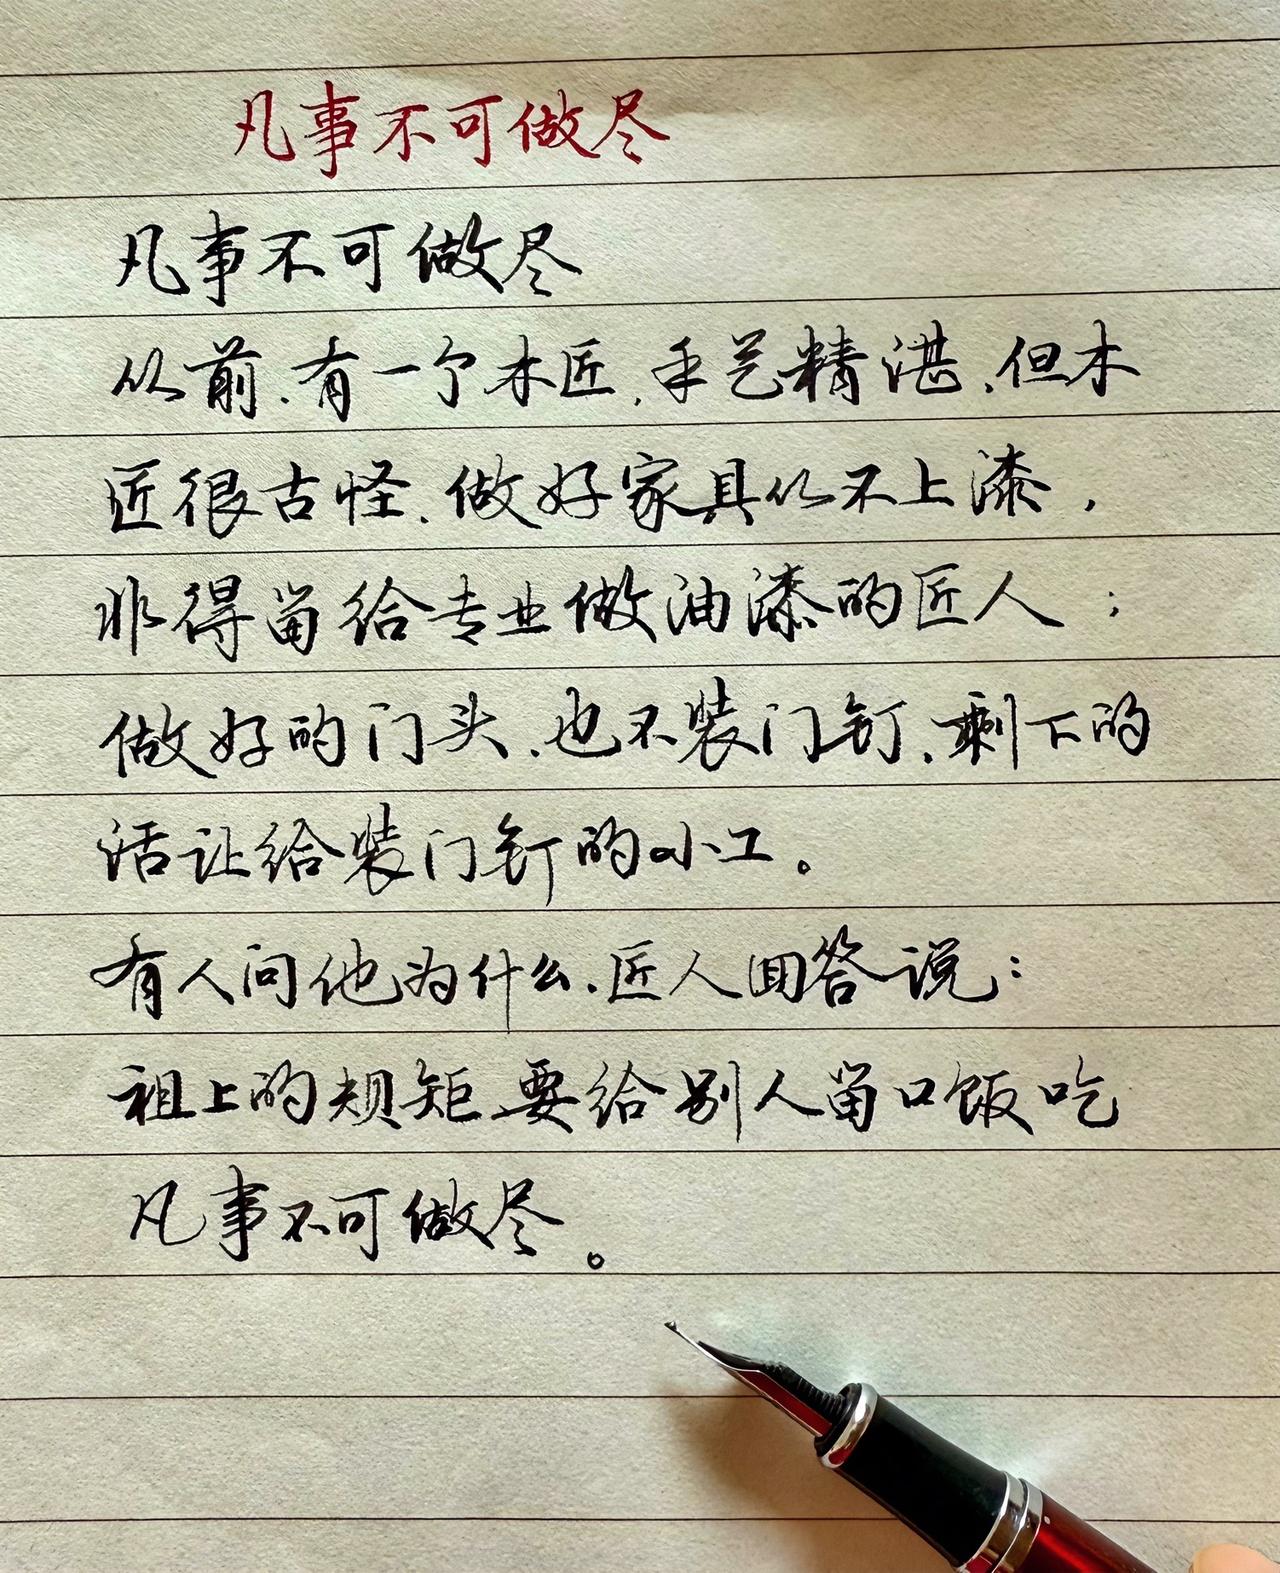 凡事不可做尽
凡事不可做尽
从前、有一个木匠,手艺精湛、但木
匠很古怪、做好家具从不上漆,
非得留给专业做油漆的匠人;
做好的门头、也不装门钉、剩下的
活让给装门钉的小工。
有人问他为什么、匠人回答说:
祖上的规矩要给别人留口饭吃
凡事不可做尽。